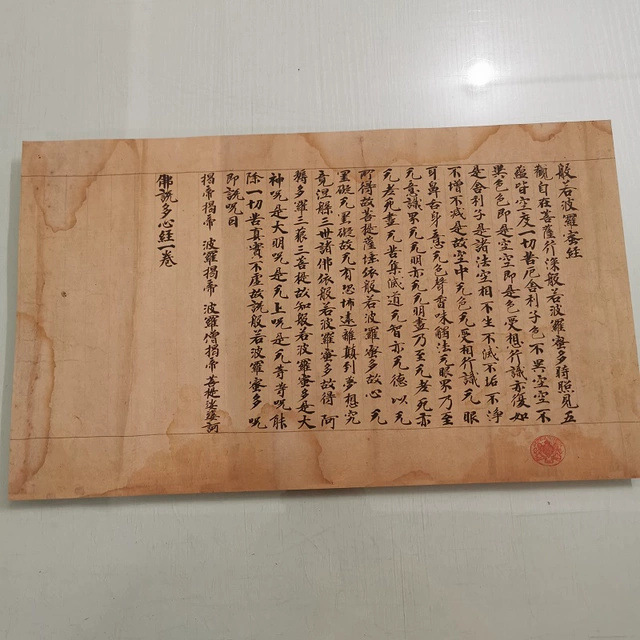 般若波羅蜜經
觀自在菩薩行深般若波羅蜜多時照見五
蘊皆空度一切苦厄舍利子色不異空空不
異色色即是空空即是色受想行識亦復如
是舍利子是諸法空相不生不滅不垢不淨
不增不減是故空中无色无受想行識无眼
耳鼻舌身意无色聲香味觸法无眼界乃至
无意識界无无明亦无无明盡乃至无老死亦
无老死盡无苦集滅道无智亦无德以无
所得故菩提薩埵依般若波羅蜜多故心无
罣礙无罣礙故无有恐怖遠離顛到夢想究
竟涅槃三世諸佛依般若波羅蜜多故得阿
耨多羅三藐三菩提故知般若波羅蜜多是大
神呪是大明呪是无上呪是无等等呪能
除一切苦真實不虛故說般若波羅蜜多呪
即說呪曰
揭帝揭帝 波羅揭帝 波羅僧揭帝 菩提莎婆訶
佛說多心經一卷